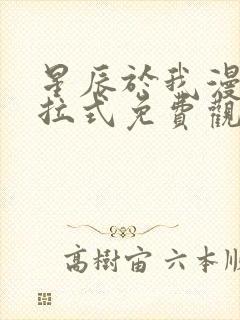 星辰於我漫
拉式免費觀
高樹宙 六本順